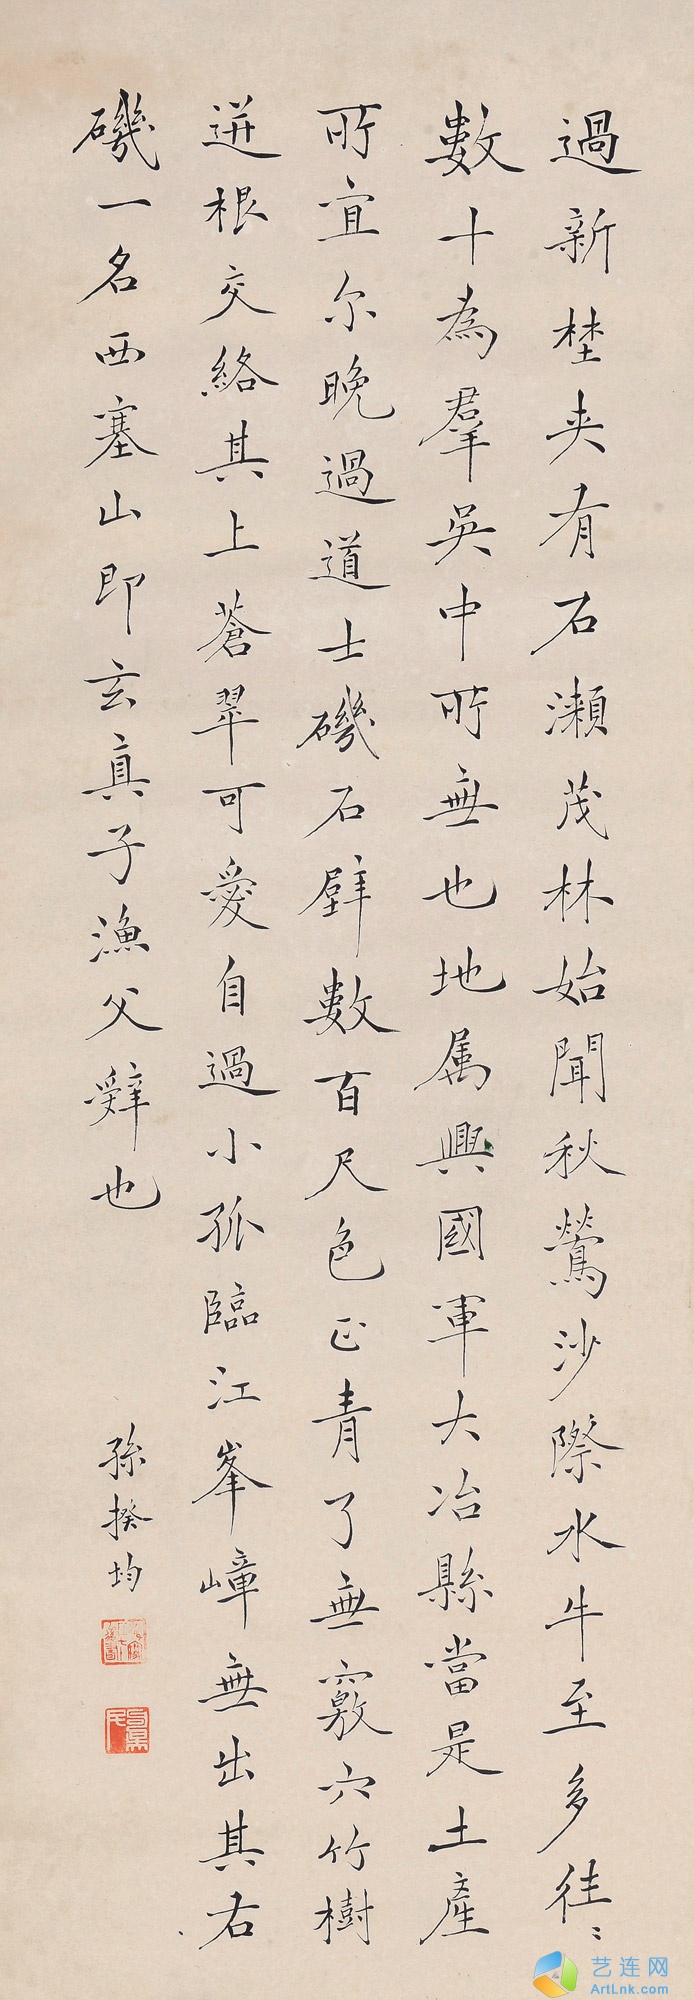 過新埜夹有石瀬茂林始聞秋鶯沙際水牛至多往〻
數十為羣吳中所無也地属興國軍大冶縣當是土產
所宜尔晚過道士磯石壁數百尺色正青了無竅穴竹樹
迸根交絡其上蒼翠可愛自過小孤臨江峯嶂無出其右
磯一名西塞山即玄真子漁父辭也
孫揆均
艺连网
ArtLnk.com